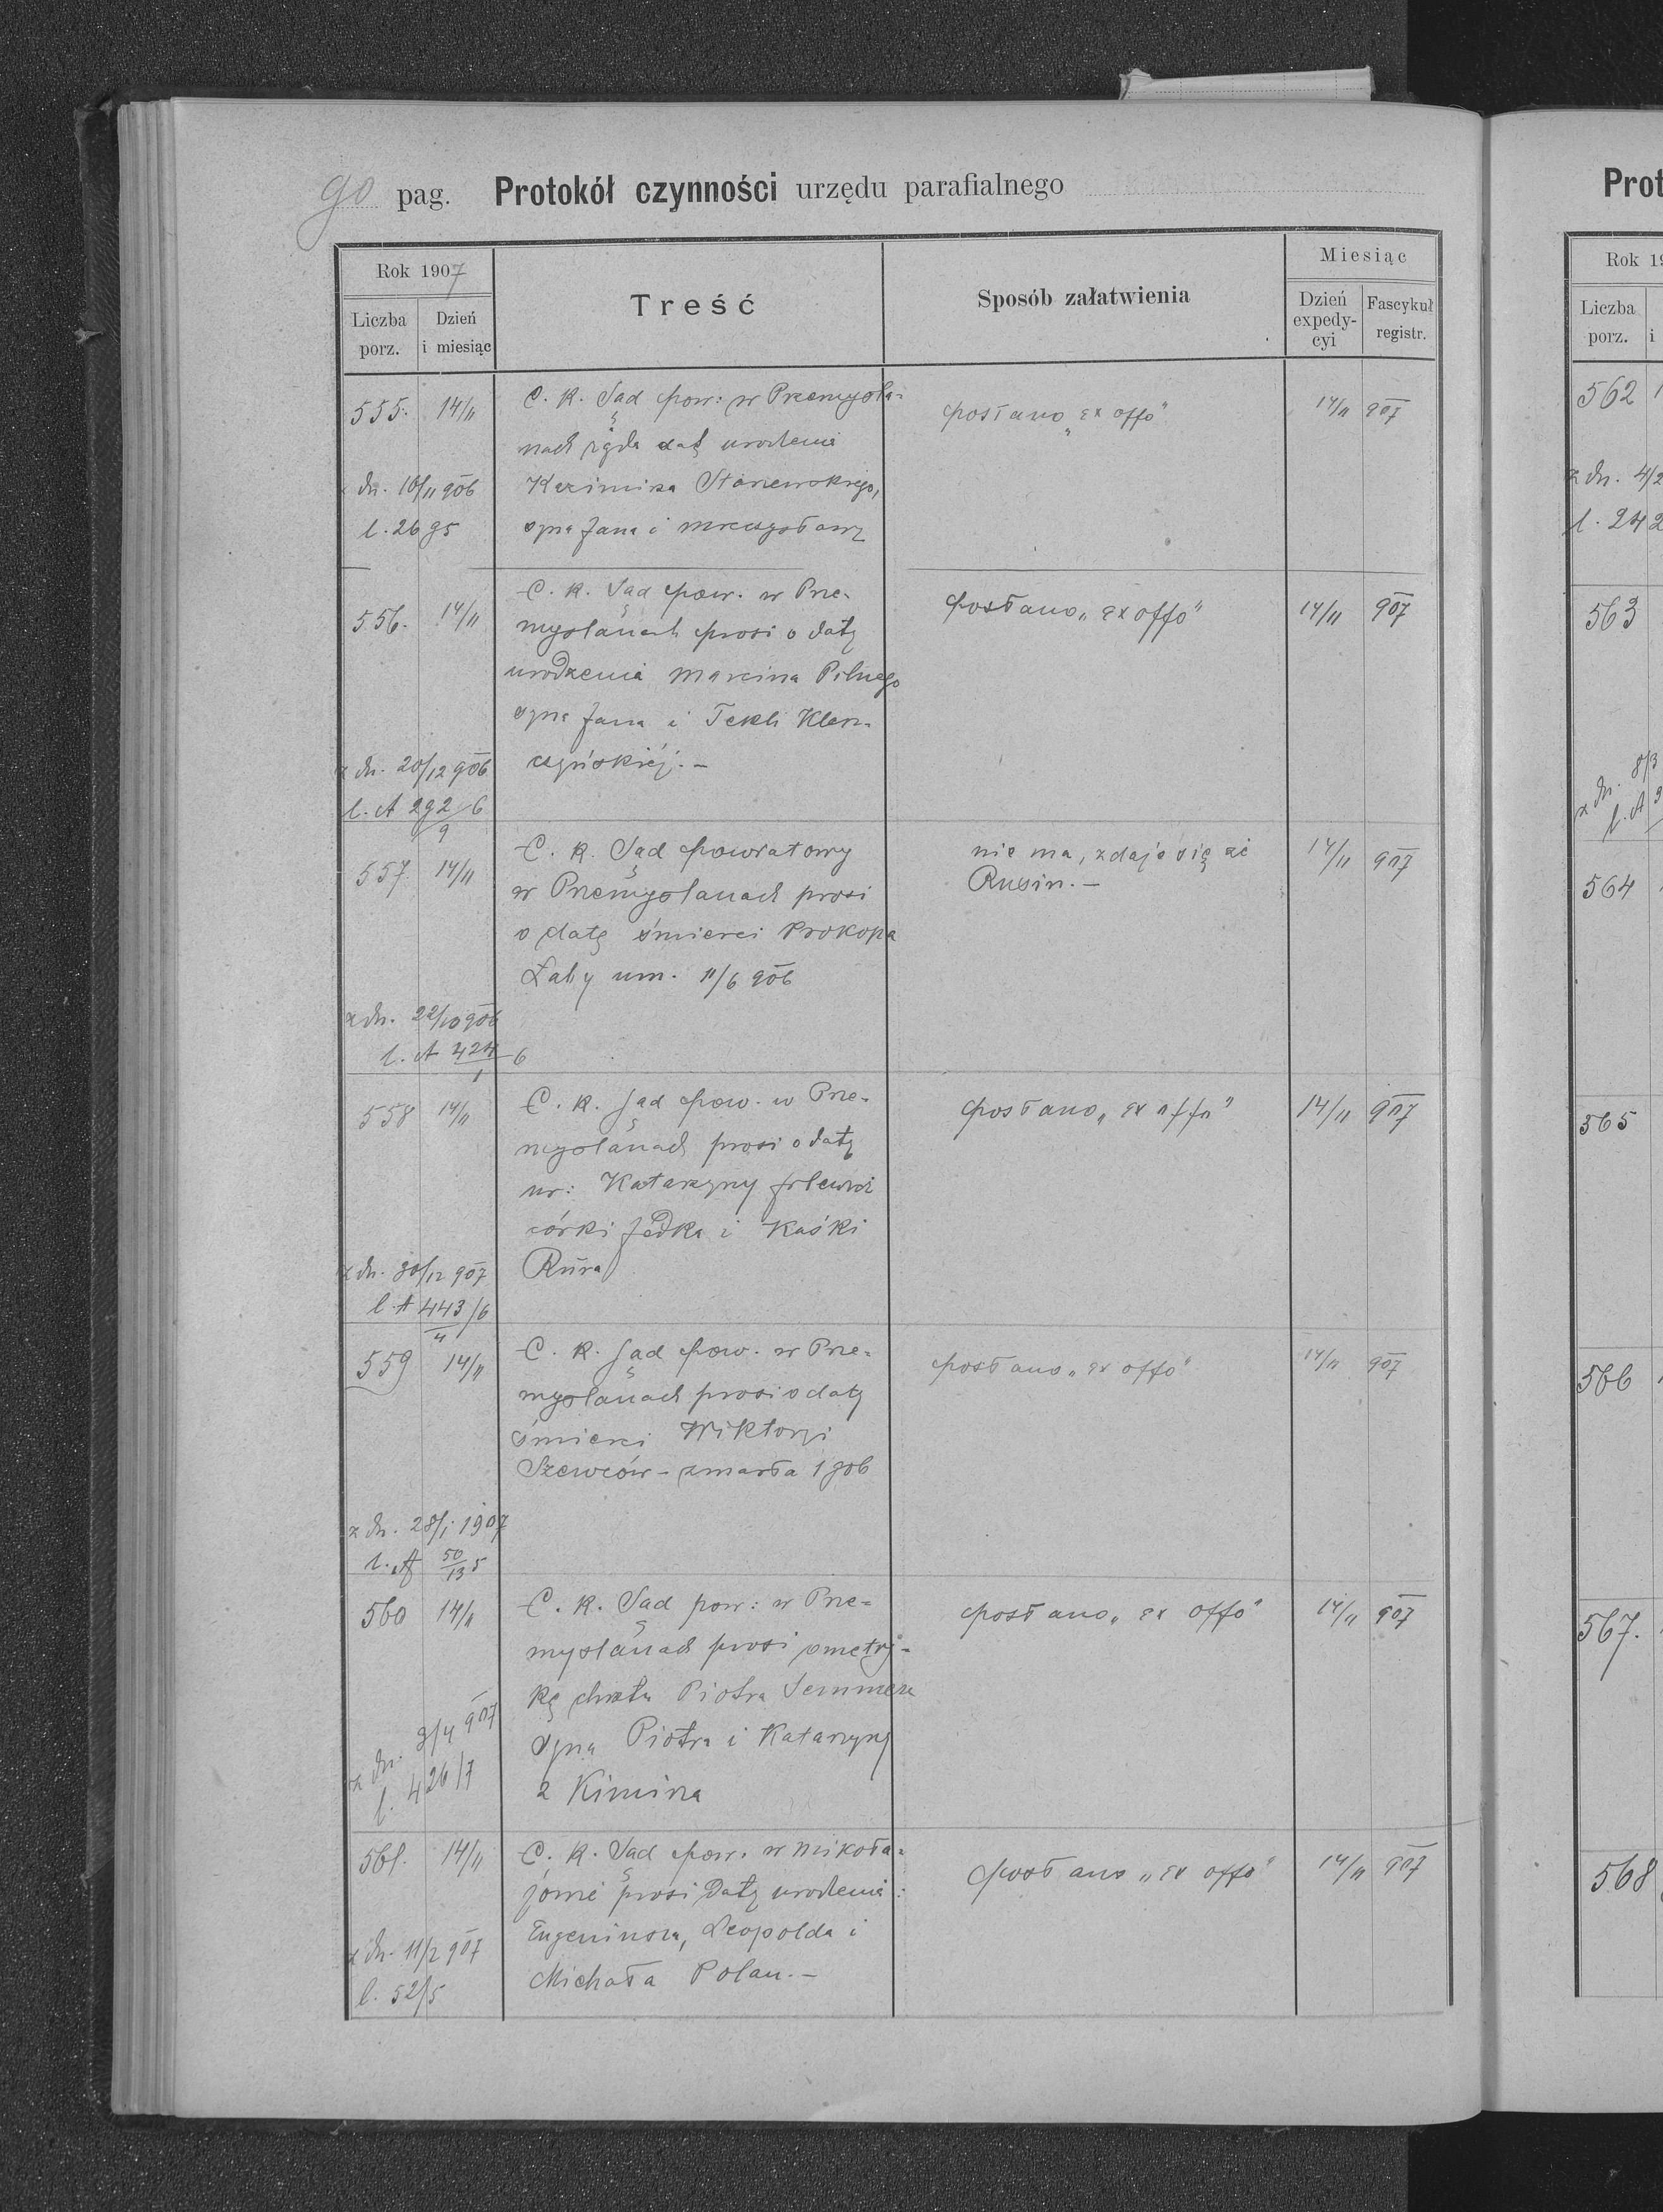 90 pag. Protokół czynności urzędu parafialnego
Rok 1907
Liczba porz.
Dzień i miesiąc
Treść
Sposób załatwienia
Miesiąc
Dzień expedy-cyi
Fascykuł registr.
555. 14/11
z dn. 10/11 906
l. 2695
C. k. Sąd pow: w Przemyśla-
nach żąda datę urodzenia
Kazimirza
syna Jana i
posłano „ex offo"
14/11 907
556. 14/11
z dn. 20/12 906
l. A 292/6
9
C. k. Sąd pow. w Prze-
myślanach prosi o datę
urodzenia Marcina Pilnego
syna Jana i Tekli Klen-
czyńskiéj. -
posłano „ex offo"
14/11 907
557. 14/11
z dn. 22/10 906
l. A 424 6
1
C. k. Sąd powiatowy
w Przemyślanach prosi
o datę śmierci Prokopa
Łaby um. 11/6 906
nie ma, zdaje się że
Rusin. -
14/11 907
558 14/11
z dn. 30/12 907
l. A 443/6
4
C. k. Sąd pow. w Prze-
myślanach prosi o datę
ur: Katarzyny
córki Fedka i Kaśki
posłano „ex offo"
14/11 907
559 14/11
z dn. 28/1 1907
l. A 50 5
13
C. k. Sąd pow. w Prze-
myślanach prosi o datę
śmierci Wiktoryi
Szewców - zmarła 1906
posłano „ex offo"
14/11 907
560 14/11
z dn. 3/4 907
l. 426/7
C. k. Sąd pow: w Prze-
myślanach prosi o metry-
kę chrztu Piotra Semmera
syna Piotra i Katarzyny
z
posłano „ex offo"
14/11 907
561. 14/11
z dn. 11/2 907
l. 52/5
C. k. Sąd pow. w Mikoła-
jowie prosi datę urodzenia:
Eugeniusza, Leopolda i
Michała Polau. -
posłano „ex offo"
14/11 907
Prot
Rok 19
Liczba porz.
i
562
z dn. 4/2
l. 242
563
z dn. 8/3
l. A
564
565
566
567.
568